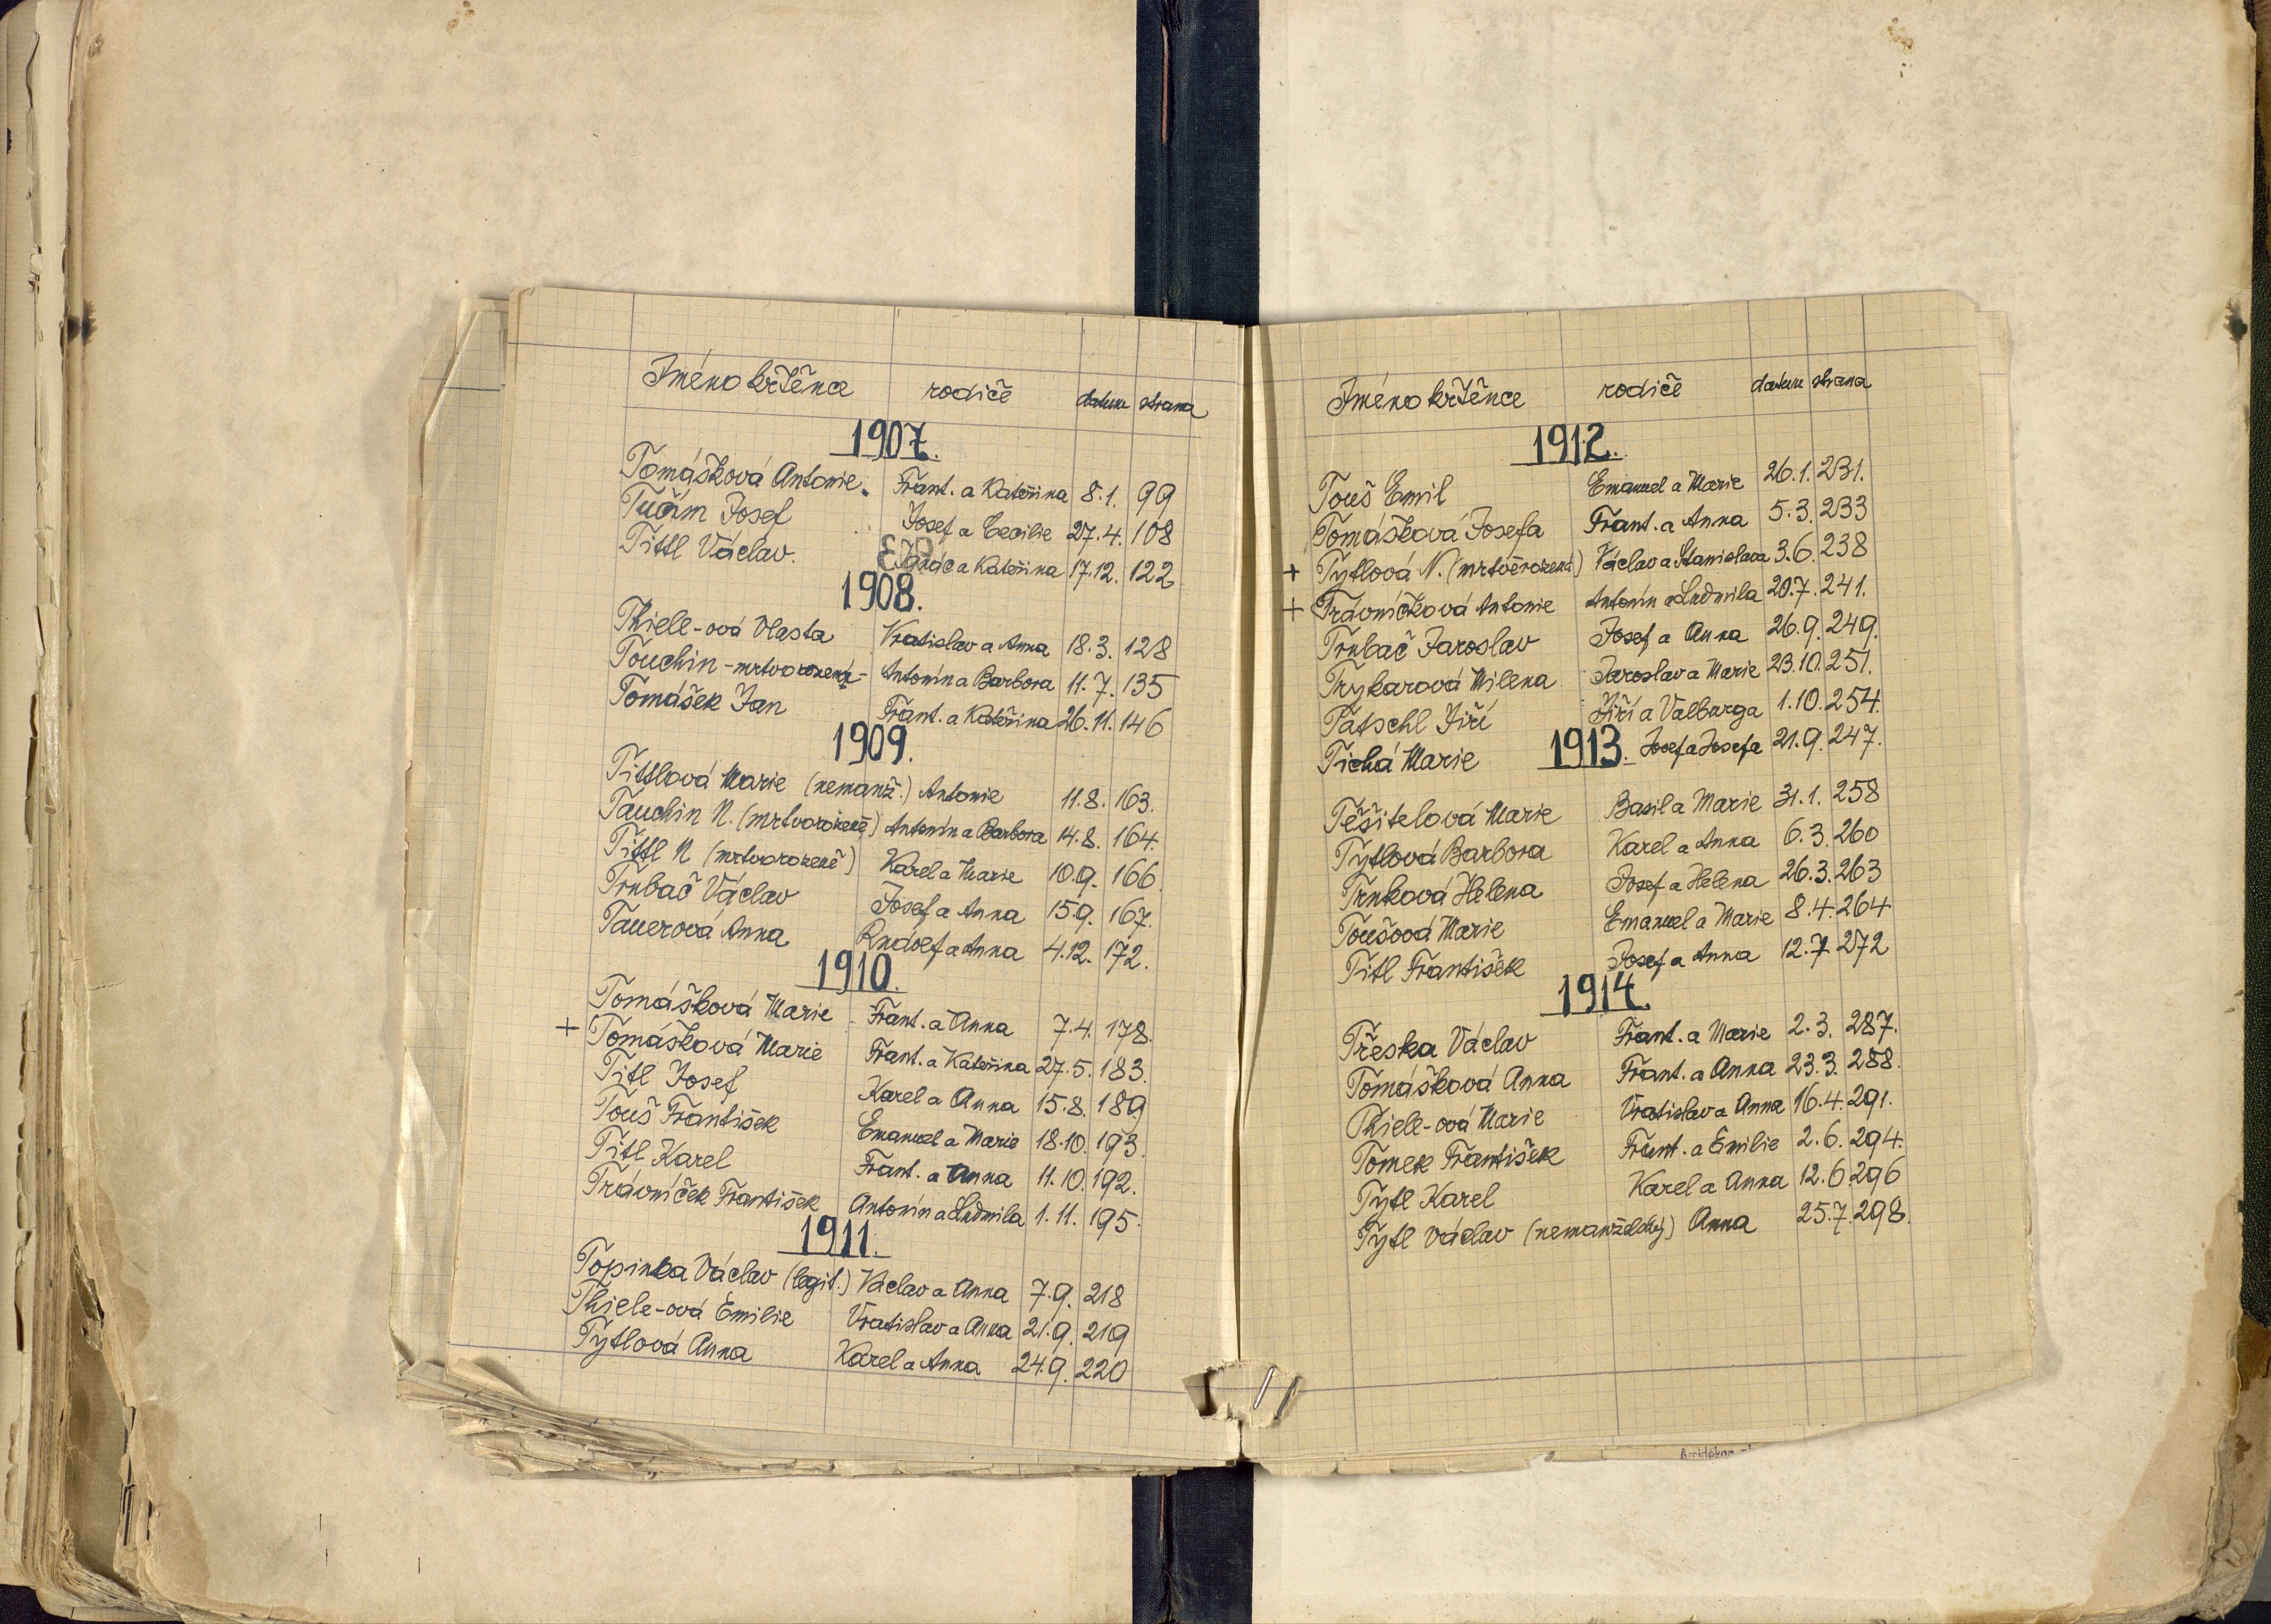 Jméno křtěnce rodiče datum strana
1907.
Tomášková Antonie. Frant. a Kateřina 8.1. 99
Tučím Josef Josef a Cecilie 27.4. 108
Tittl Václav. Ignác a Kateřina 17.12. 122
1908.
Thiele-ová Vlasta Vratislav a Anna 18.3. 128
Touchin - mrtvorozená - Antonín a Barbora 11.7. 135
Tomášek Jan Frant. a Kateřina 26.11. 146
1909.
Tittlová Marie (nemanž.) Antonie 11.8. 163.
Tauchin N. (mrtvorozeně) Antonín a Barbora 14.8. 164.
Tittl N (mrtvorozeně) Karel a Marie 10.9. 166.
Trubač Václav Josef a Anna 15.9. 167.
Tauerová Anna Rudolf a Anna 4.12. 172.
1910.
Tomášková Marie Frant. a Anna 7.4. 178.
+ Tomášková Marie Frant. a Kateřina 27.5. 183.
Titl Josef Karel a Anna 15.8. 189
Touš František Emanuel a Marie 18.10. 193.
Titl Karel Frant. a Anna 11.10. 192.
Trávníček František Antonín a Ludmila 1.11. 195.
1911.
Topinka Václav (legit.) Václav a Anna 7.9. 218
Thiele-ová Emilie Vratislav a Anna 21.9. 219
Tytlová Anna Karel a Anna 24.9. 220
Jméno křtěnce rodiče datum strana
1912.
Touš Emil Emanuel a Marie 26.1. 231.
Tomášková Josefa Frant. a Anna 5.3. 233
+ Tytlová N. (mrtvěrozená) Václav a Stanislava 3.6. 238
+ Trávníčková Antonie Antonín a Ludmila 20.7. 241.
Trubač Jaroslav Josef a Anna 26.9. 249.
Trykarová Milena Jaroslav a Marie 23.10. 251.
Tätschl Jiří Jiří a Valburga 1.10. 254.
Tichá Marie Josef a Josefa 21.9. 247.
1913.
Těšitelová Marie Basil a Marie 31.1. 258
Tytlová Barbora Karel a Anna 6.3. 260
Trnková Helena Josef a Helena 26.3. 263
Toušová Marie Emanuel a Marie 8.4. 264
Titl František Josef a Anna 12.7. 272
1914.
Třeska Václav Frant. a Marie 2.3. 287.
Tomášková Anna Frant. a Anna 23.3. 288.
Thiele-ová Marie Vratislav a Anna 16.4. 291.
Tomek František Frant. a Emilie 2.6. 294.
Tytl Karel Karel a Anna 12.6. 296
Tytl Václav (nemanželský) Anna 25.7. 298.